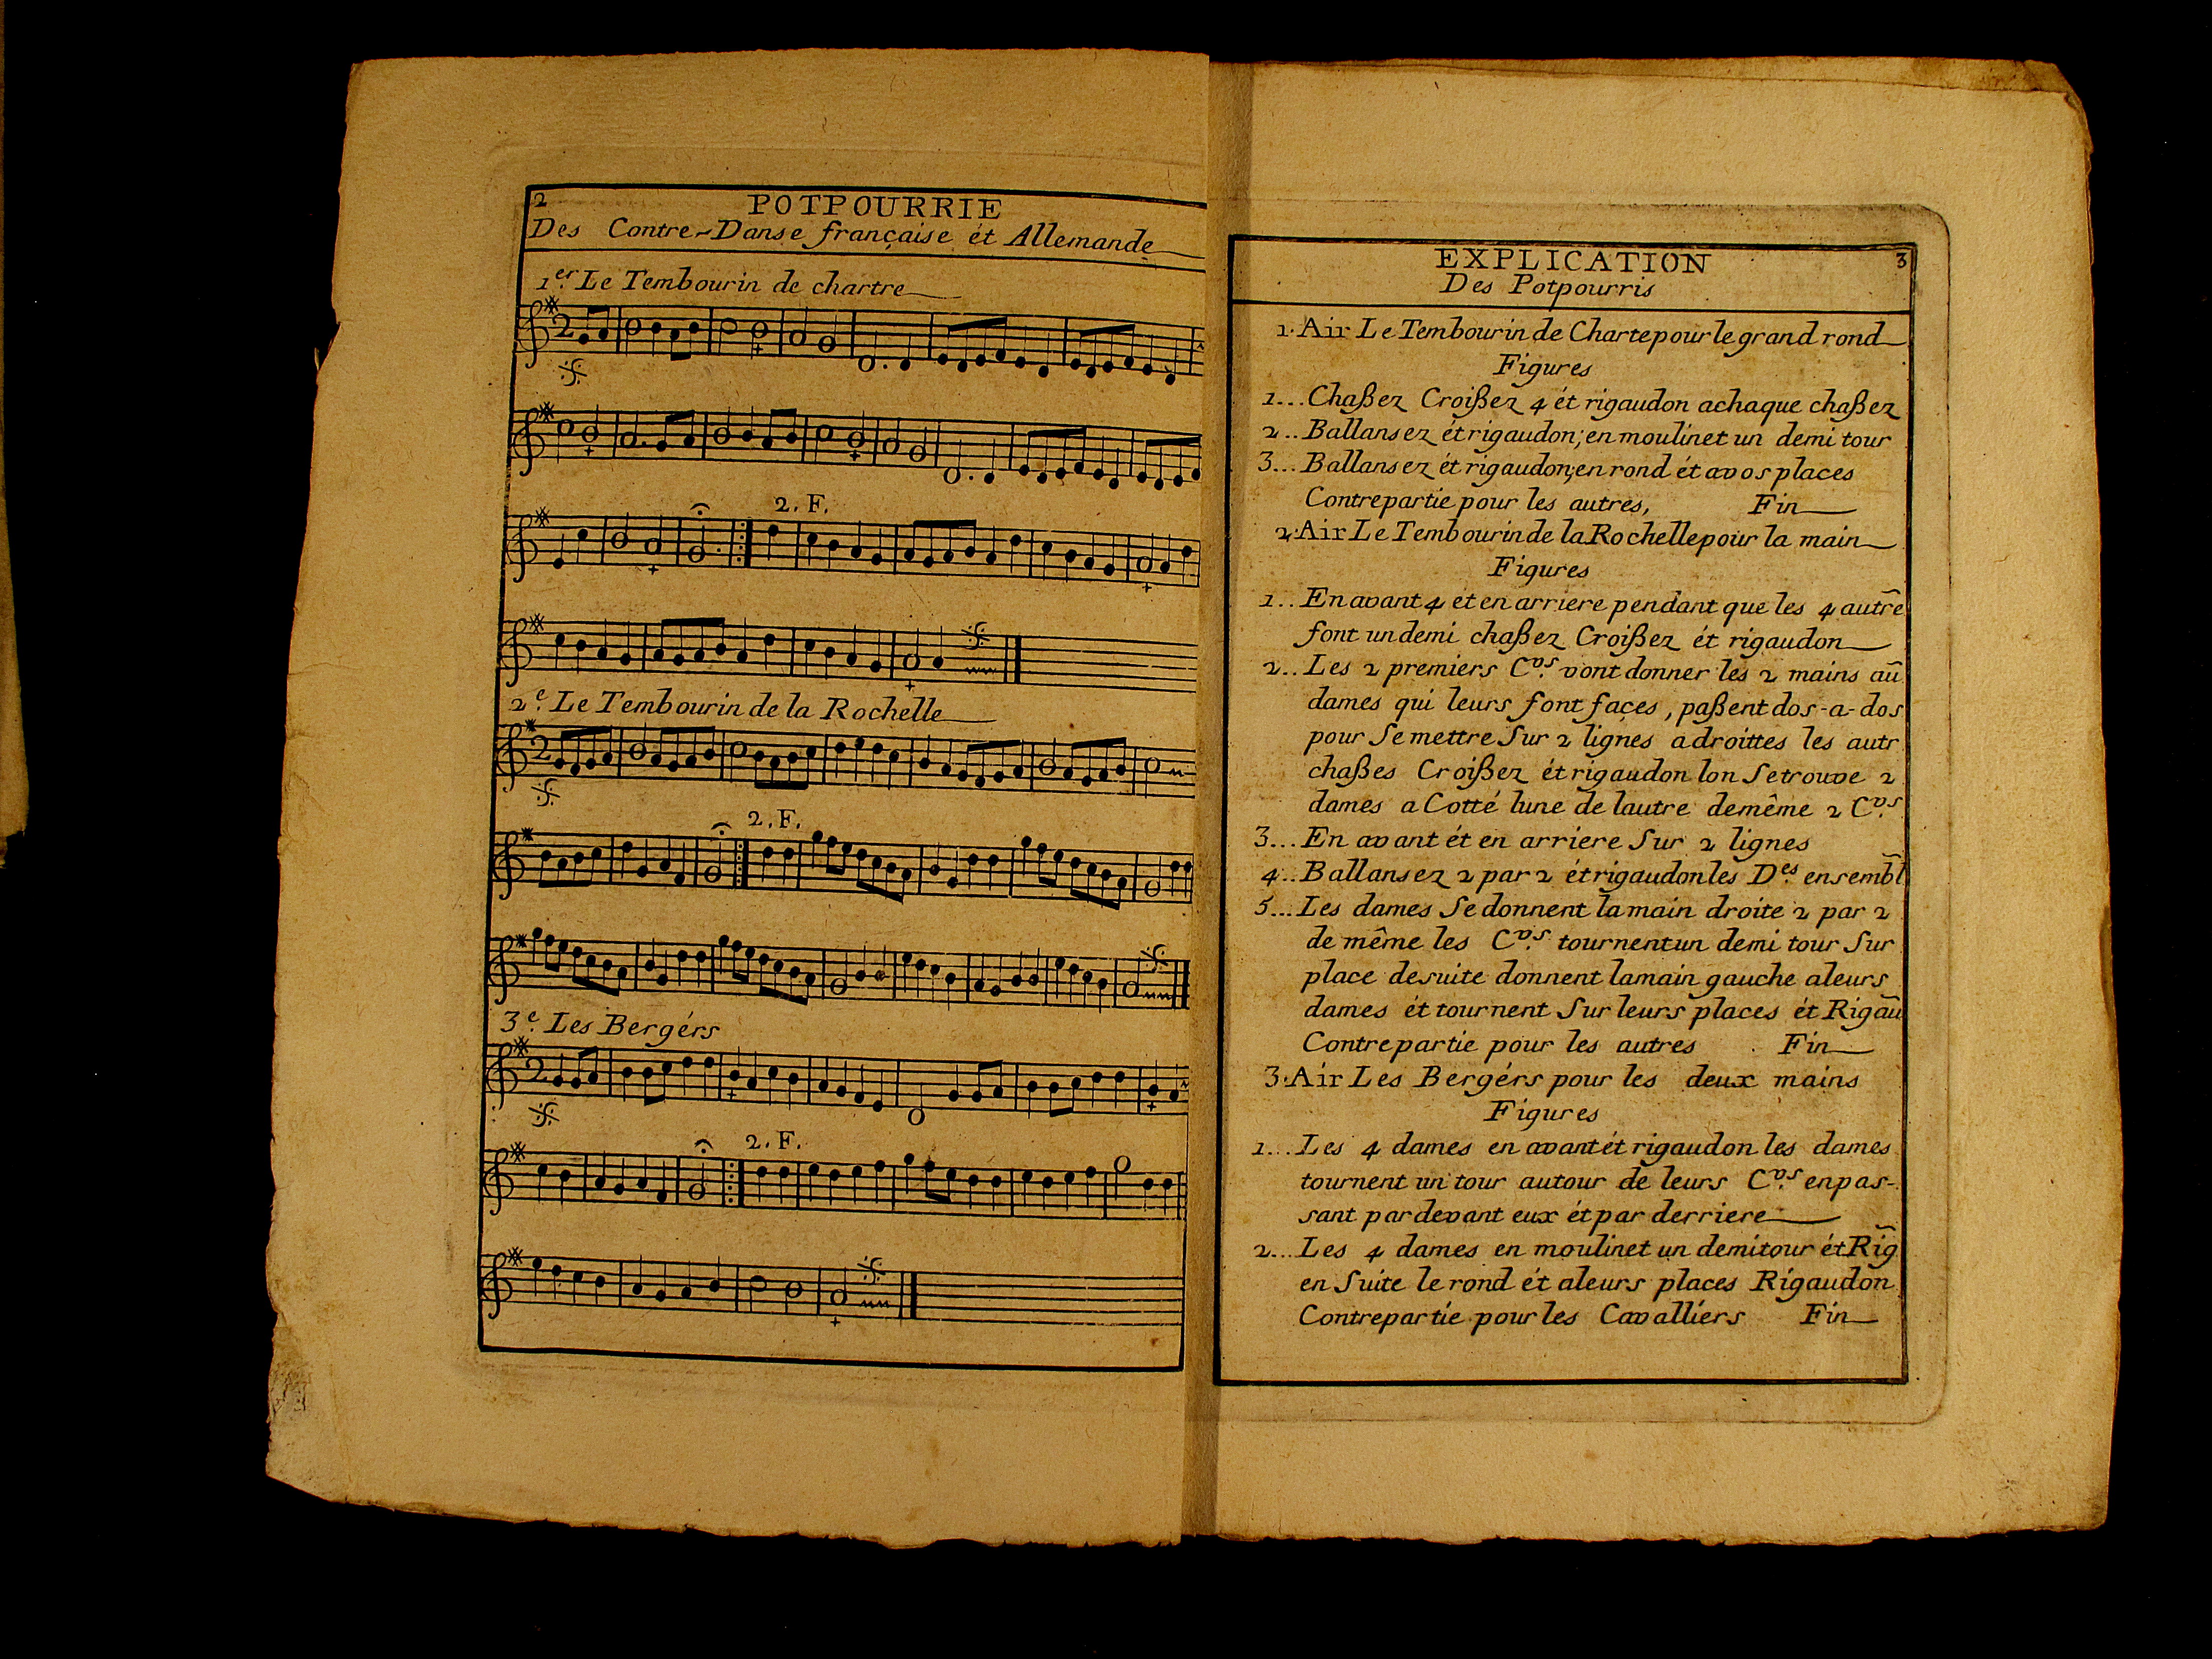 2
POTPOURRIE
Des Contre-Danse française ét Allemande
1.er Le Tembourin de chartre
2
2. F.
2.e Le Tembourin de la Rochelle
2
2. F.
3.e Les Bergérs
2
2. F.
EXPLICATION 3
Des Potpourris
1. Air Le Tembourin de Charte pour le grand rond
Figures
1... Chaßez Croißez 4 ét rigaudon achaque chaßez
2.. Ballansez ét rigaudon; en moulinet un demi tour
3... Ballansez ét rigaudon; en rond ét avos places
Contrepartie pour les autres, Fin
2. Air Le Tembourin de la Rochelle pour la main
Figures
1.. En avant 4 et en arriere pendant que les 4 autre
font un demi chaßez Croißez ét rigaudon
2.. Les 2 premiers C.vs vont donner les 2 mains aũ
dames qui leurs font façes, paßent dos-a-dos
pour Se mettre Sur 2 lignes adroittes les autr
chaßes Croißez ét rigaudon lon Se trouve 2
dames a Cotté lune de lautre demême 2 C.vs
3... En avant ét en arriere Sur 2 lignes
4.. Ballansez 2 par 2 ét rigaudon les D.es ensembl
5... Les dames Se donnent la main droite 2 par 2
de même les C.vs tournent un demi tour Sur
place desuite donnent lamain gauche aleurs
dames ét tournent Sur leurs places ét Rigaũ
Contrepartie pour les autres Fin
3. Air Les Bergérs pour les deux mains
Figures
1... Les 4 dames en avant ét rigaudon les dames
tournent un tour autour de leurs C.vs en pas-
sant par devant eux ét par derriere
2... Les 4 dames en moulinet un demi tour ét Rig̃
en Suite le rond ét aleurs places Rigaudon
Contrepartie pour les Cavalliers Fin